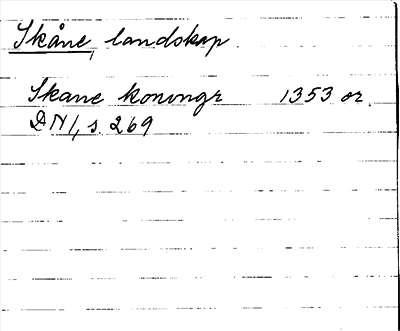 Skåne, landskap.
Skane konungr 1353 or.
DN 1, s. 269